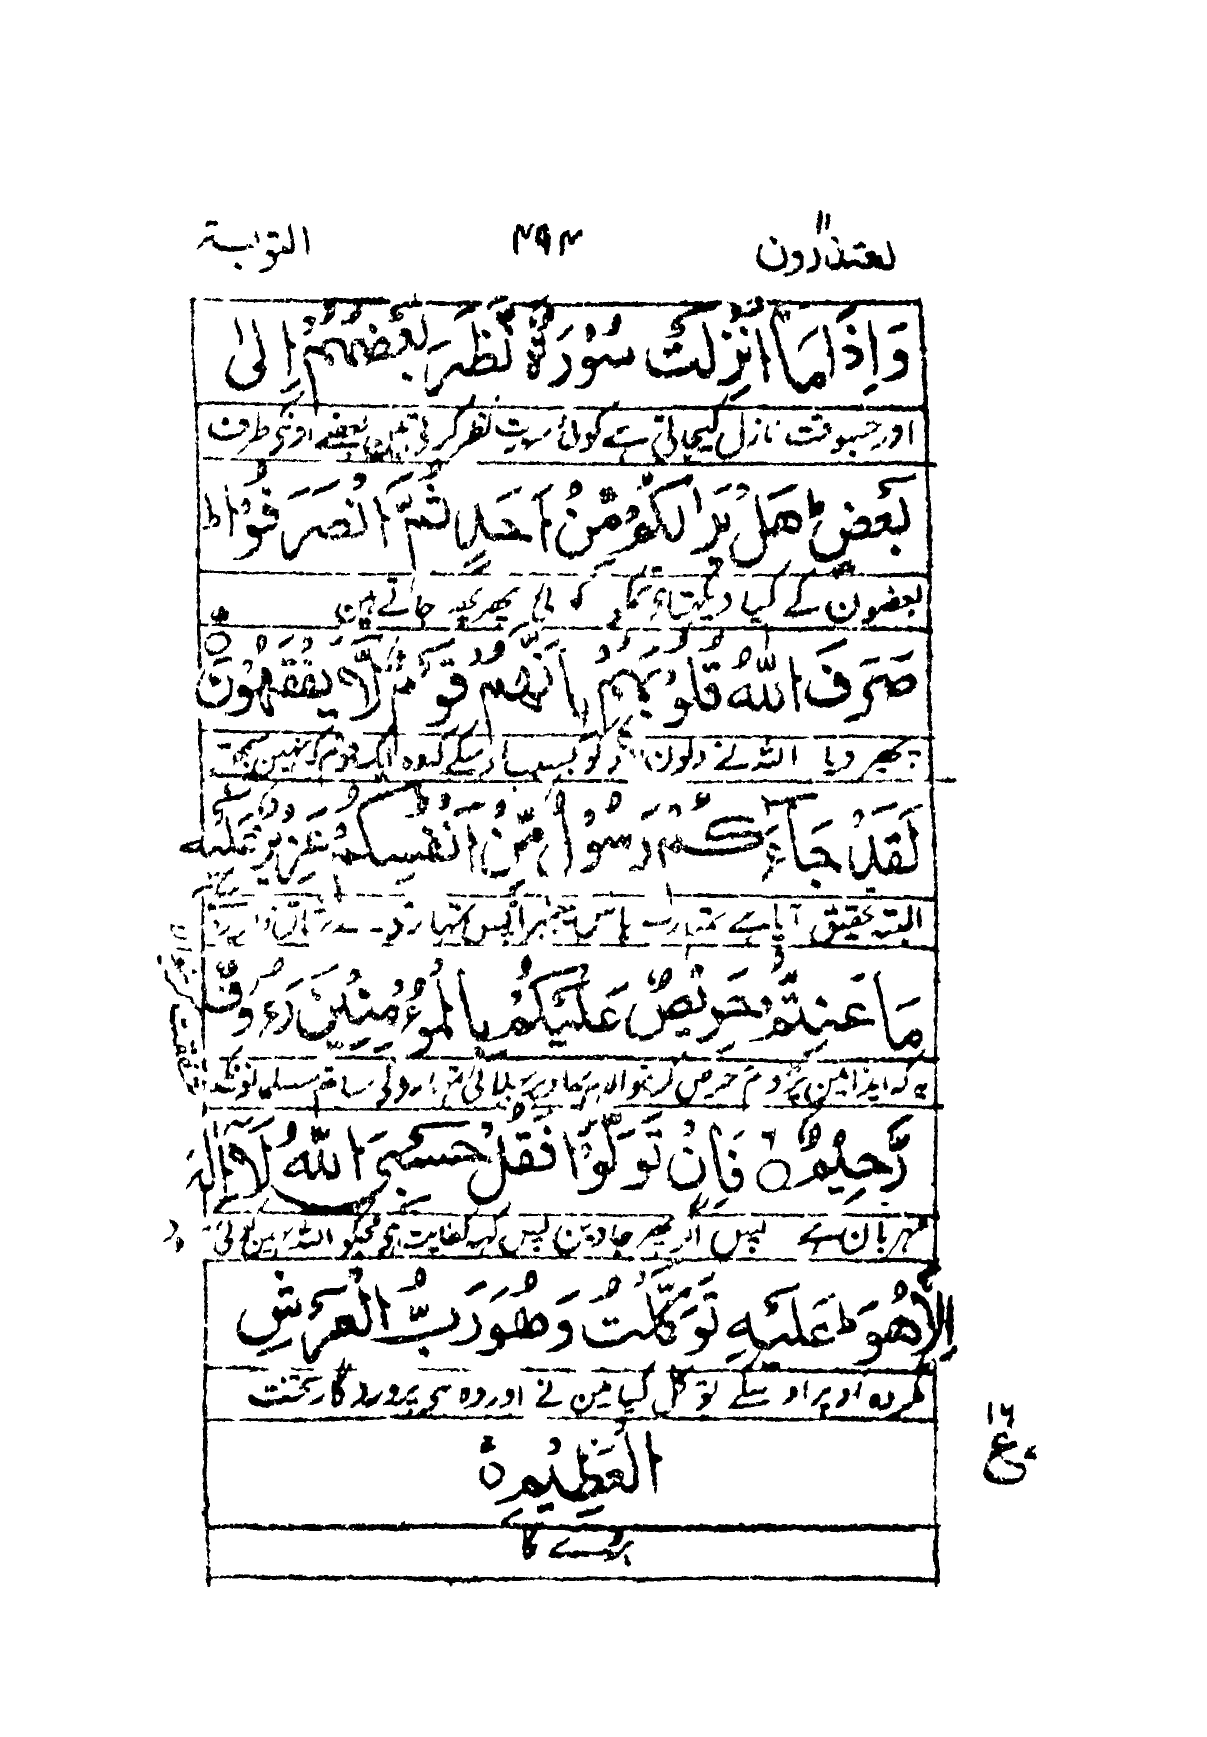 يعتذرون ١١ ٤٩٤ التوبة
وَاِذَا مَآ اُنْزِلَتْ سُوْرَةٌ نَّظَرَ بَعْضُهُمْ اِلٰى
اور جسوقت نازل کیجاتی ہے کوئی سورت نظر کرتی ہین بعضے اونکی طرف
بَعْضٍ ؕ هَلْ يَرٰىكُمْ مِّنْ اَحَدٍ ثُمَّ انْصَرَفُوْا ؕ
بعضون کے کیا دیکھتا ہی تمکو کوئی پھر پھر جاتے ہین
صَرَفَ اللّٰهُ قُلُوْبَهُمْ بِاَنَّهُمْ قَوْمٌ لَّا يَفْقَهُوْنَ
پھیر دیا اللہ نے دلون کو بسبب اسکے کہ وہ ایک قوم نہین سمجھتے
لَقَدْ جَآءَكُمْ رَسُوْلٌ مِّنْ اَنْفُسِكُمْ عَزِيْزٌ عَلَيْهِ
البتہ تحقیق آیا ہے تمہارے پاس پیغمبر
مَا عَنِتُّمْ حَرِيْصٌ عَلَيْكُمْ بِالْمُؤْمِنِيْنَ رَءُوْفٌ
یہ کہ ایذا مین پڑو تم حرص کرنیوالا ہی اوپر بھلائی تمہاری ساتھ مسلمانونکے
شفقت کرنیوالا
رَّحِيْمٌ ۝ فَاِنْ تَوَلَّوْا فَقُلْ حَسْبِيَ اللّٰهُ لَآ اِلٰهَ
مہربان ہے پس اگر پھر جاوین پس کہہ کفایت ہی مجکو اللہ نہین کوئی
اِلَّا هُوَ ؕ عَلَيْهِ تَوَكَّلْتُ وَهُوَ رَبُّ الْعَرْشِ
مگر وہ اوپر اوسکے توکل کیا مین نے اور وہ ہی پروردگار تخت
١٦ ع
الْعَظِيْمِ ۝
بڑے کا